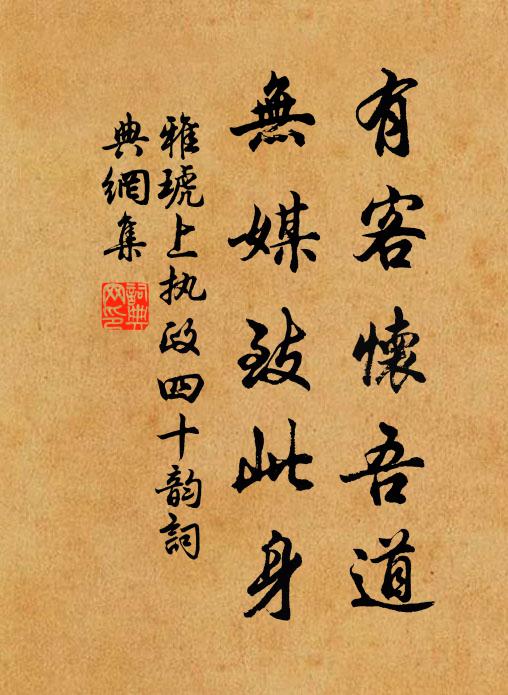 有客懷吾道
無媒致此身
雅琥上执政四十韵詞
典網集
詞典網印